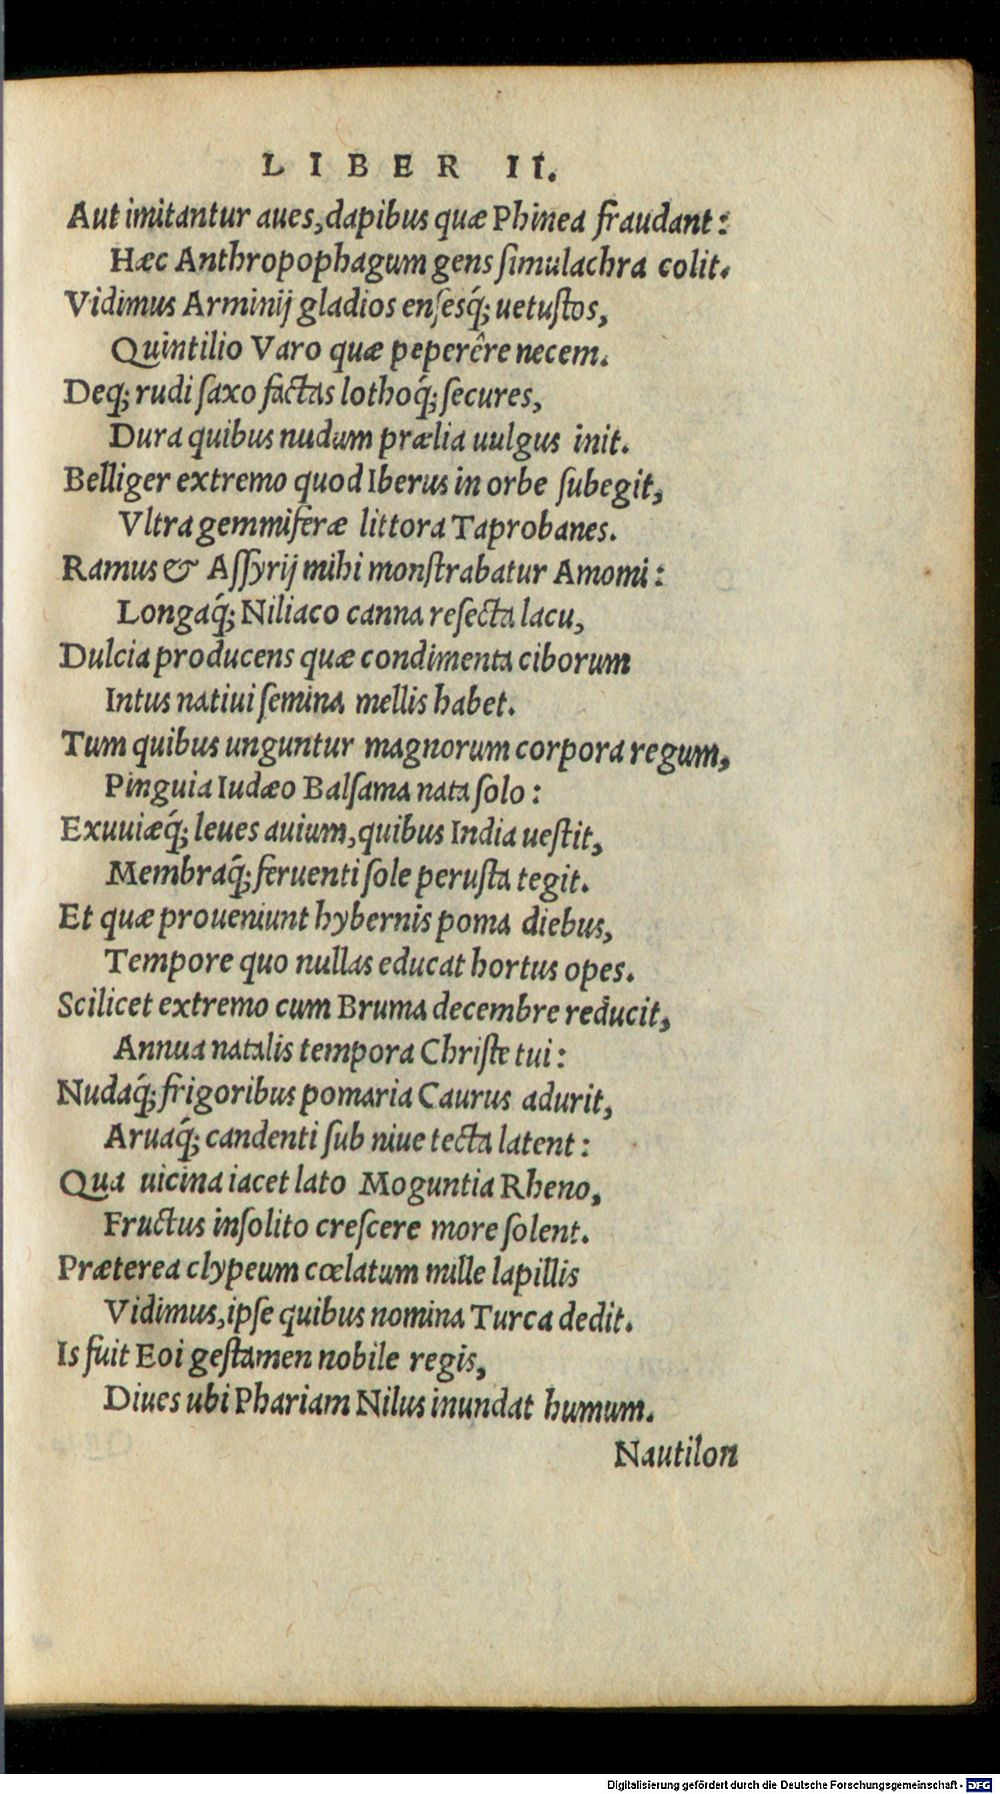 LIBER II.
Aut imitantur aues, dapibus quæ Phinea fraudant:
Hæc Anthropophagum gens ſimulachra colit.
Vidimus Arminij gladios enſesq́; uetuſtos,
Quintilio Varo quæ peperêre necem.
Deq; rudi ſaxo factas lothoq́; ſecures,
Dura quibus nudum prælia uulgus init.
Belliger extremo quod Iberus in orbe ſubegit,
Vltra gemmiferæ littora Taprobanes.
Ramus & Aſſyrij mihi monſtrabatur Amomi:
Longaq́; Niliaco canna reſecta lacu,
Dulcia producens quæ condimenta ciborum
Intus natiui ſemina mellis habet.
Tum quibus unguntur magnorum corpora regum,
Pinguia Iudæo Balſama nata ſolo:
Exuuiæq́; leues auium, quibus India ueſtit,
Membraq́; feruenti ſole peruſta tegit.
Et quæ proueniunt hybernis poma diebus,
Tempore quo nullas educat hortus opes.
Scilicet extremo cum Bruma decembre reducit,
Annua natalis tempora Chriſte tui:
Nudaq́; frigoribus pomaria Caurus adurit,
Aruaq́; candenti ſub niue tecta latent:
Qua uicina iacet lato Moguntia Rheno,
Fructus inſolito creſcere more ſolent.
Præterea clypeum cœlatum mille lapillis
Vidimus, ipſe quibus nomina Turca dedit.
Is fuit Eoi geſtamen nobile regis,
Diues ubi Phariam Nilus inundat humum.
Nautilon
Digitalisierung gefördert durch die Deutsche Forschungsgemeinschaft - DFG